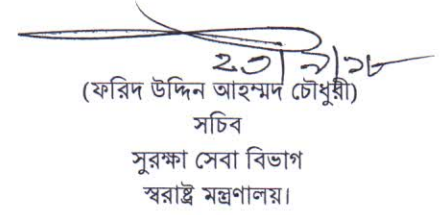 (ফরিদ উদ্দিন আহম্মদ চৌধুরী)
সচিব
সুরক্ষা সেবা বিভাগ
স্বরাষ্ট্র মন্ত্রণালয়।